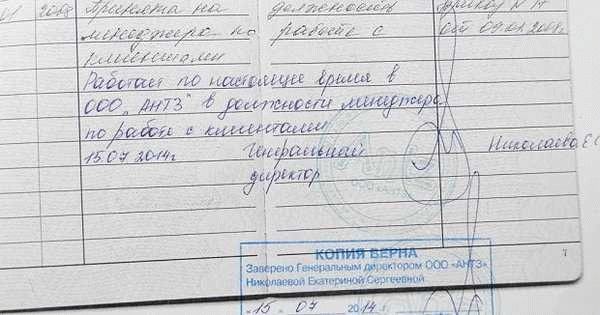 01 2008 Принята на должность Приказ № 17
менеджера по работе с от 09.01.2008г.
клиентами
Работает по настоящее время в
ООО "АНТЗ" в должности менеджера
по работе с клиентами
15.07.2014г. Генеральный Николаева Е.С
директор
ООО «АНТЗ»
КОПИЯ ВЕРНА
Заверено Генеральным директором ООО «АНТЗ»
Николаевой Екатериной Сергеевной
"15" 07 2014 г.